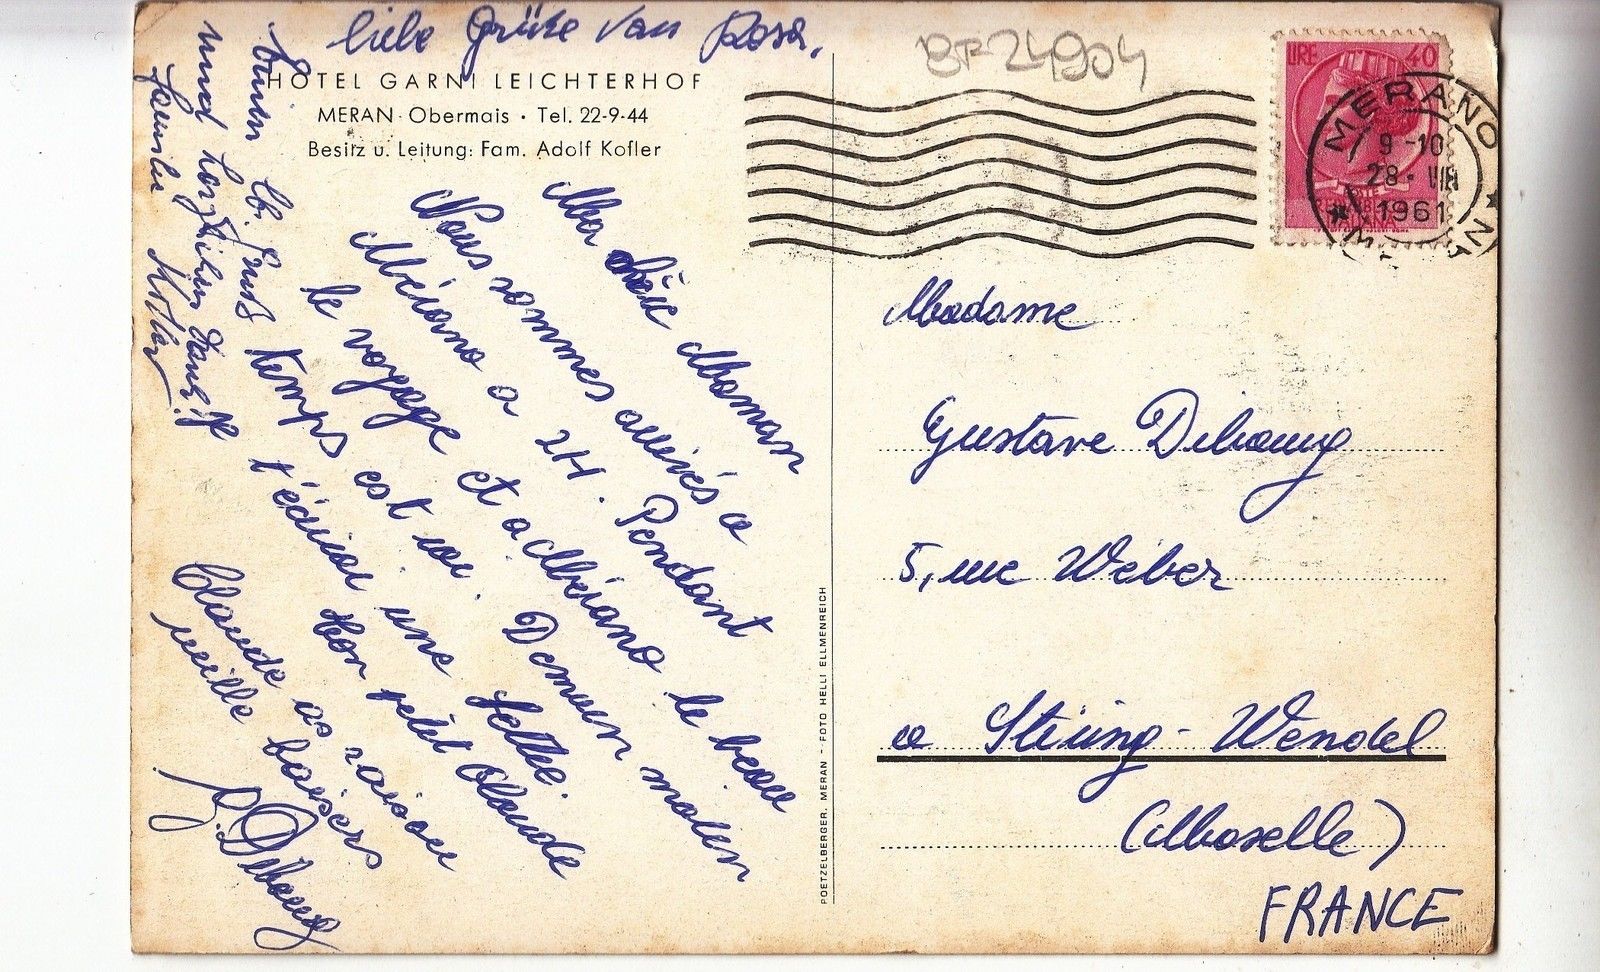 liebe Grüße von Rosa,
HOTEL GARNI LEICHTERHOF
MERAN - Obermais • Tel. 22-9-44
Besitz u. Leitung: Fam. Adolf Kofler
und herzlichen Dank!
Familie Kofler
Ma Maman
Nous sommes arrivés a
Mérano a 2H. Pendant
le voyage et a Mérano le beau
temps est roi. Demain matin
je t'écrirai une lettre.
ton petit Claude
Claude
mille baisers
G. Diboury
BF24904
LIRE 40
MERANO
9-10
28. VIII
1961
Madame
Gustave Diboury
5, rue Wéber
a Stiring-Wendel
(Moselle)
FRANCE
POETZELBERGER, MERAN - FOTO HELLI ELLMENREICH